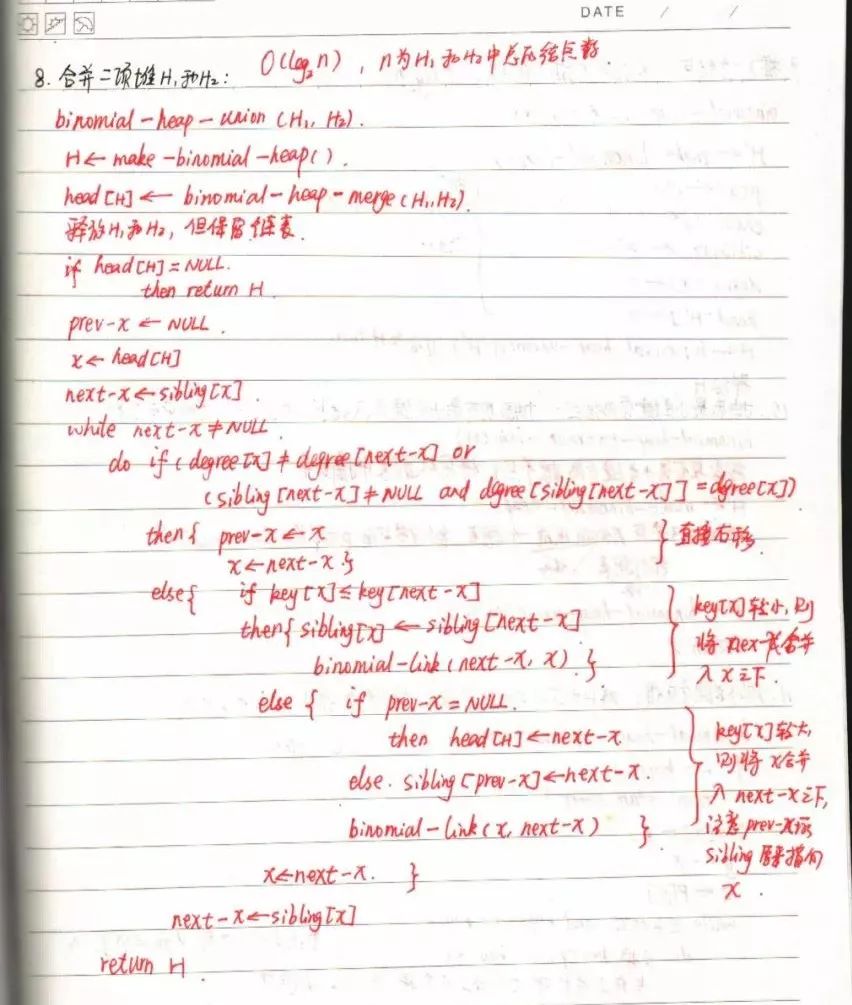 DATE / /
8. 合并二项堆H₁和H₂: O(log₂n), n为H₁和H₂中总的结点数.
binomial-heap-union(H₁, H₂).
H← make-binomial-heap().
head[H] ← binomial-heap-merge(H₁,H₂)
释放H₁和H₂, 但保留链表.
if head[H] = NULL.
then return H.
prev-x ← NULL.
x ← head[H]
next-x←sibling[x].
while next-x ≠ NULL.
do if (degree[x] ≠ degree[next-x] or
(sibling[next-x] ≠ NULL and dgree[sibling[next-x]] = dgree[x])
then{ prev-x ← x
x ← next-x.} 直接右移.
else{ if key[x] ≤ key[next-x] key[x]较小, 则
then{ sibling[x] ← sibling[next-x] 将 合并
binomial-link(next-x, x). } 入x之下.
else { if prev-x = NULL.
then head[H] ← next-x key[x]较大,
else. sibling[prev-x] ← next-x. 则将x合并
入next-x之下,
binomial-link(x, next-x) } 注意prev-x
sibling 指向
x←next-x. } x.
next-x←sibling[x]
return H.